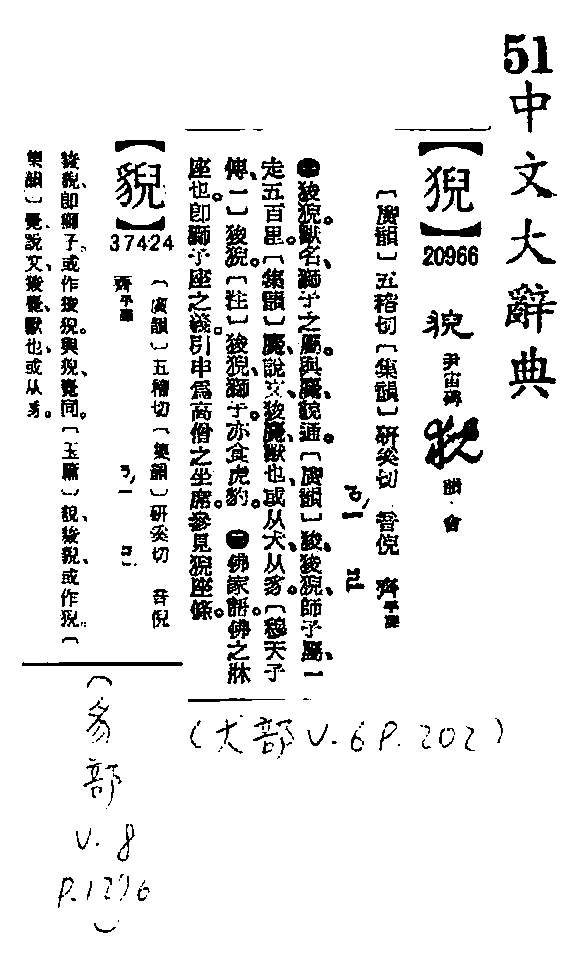 51
中文大辭典
【猊】
20966
猊 尹宙碑
猊 韻・會
〔廣韻〕五稽切〔集韻〕研奚切 音倪 齊平聲
ㄋㄧˊ ni
㊀狻猊。獸名。獅子之屬。與麑貎通。〔廣韻〕狻、狻猊、師子屬、一
走五百里。〔集韻〕麑、說文、狻麑、獸也、或从犬从豸。〔穆天子
傳、一〕狻猊。〔注〕狻猊、獅子、亦食虎豹。㊁佛家語。佛之牀
座也。卽獅子座之義。引申爲高僧之坐席。參見猊座條。
(犬部 V.6 P.202)
【貎】
37424
〔廣韻〕五稽切〔集韻〕研奚切 音倪
齊平聲
ㄋㄧˊ ni
狻貎、卽獅子。或作狻猊。與猊麑同。〔玉篇〕貎、狻貎、或作猊。〔
集韻〕麑、說文、狻麑、獸也、或从豸。
(豸部
V.8
P.1296
)